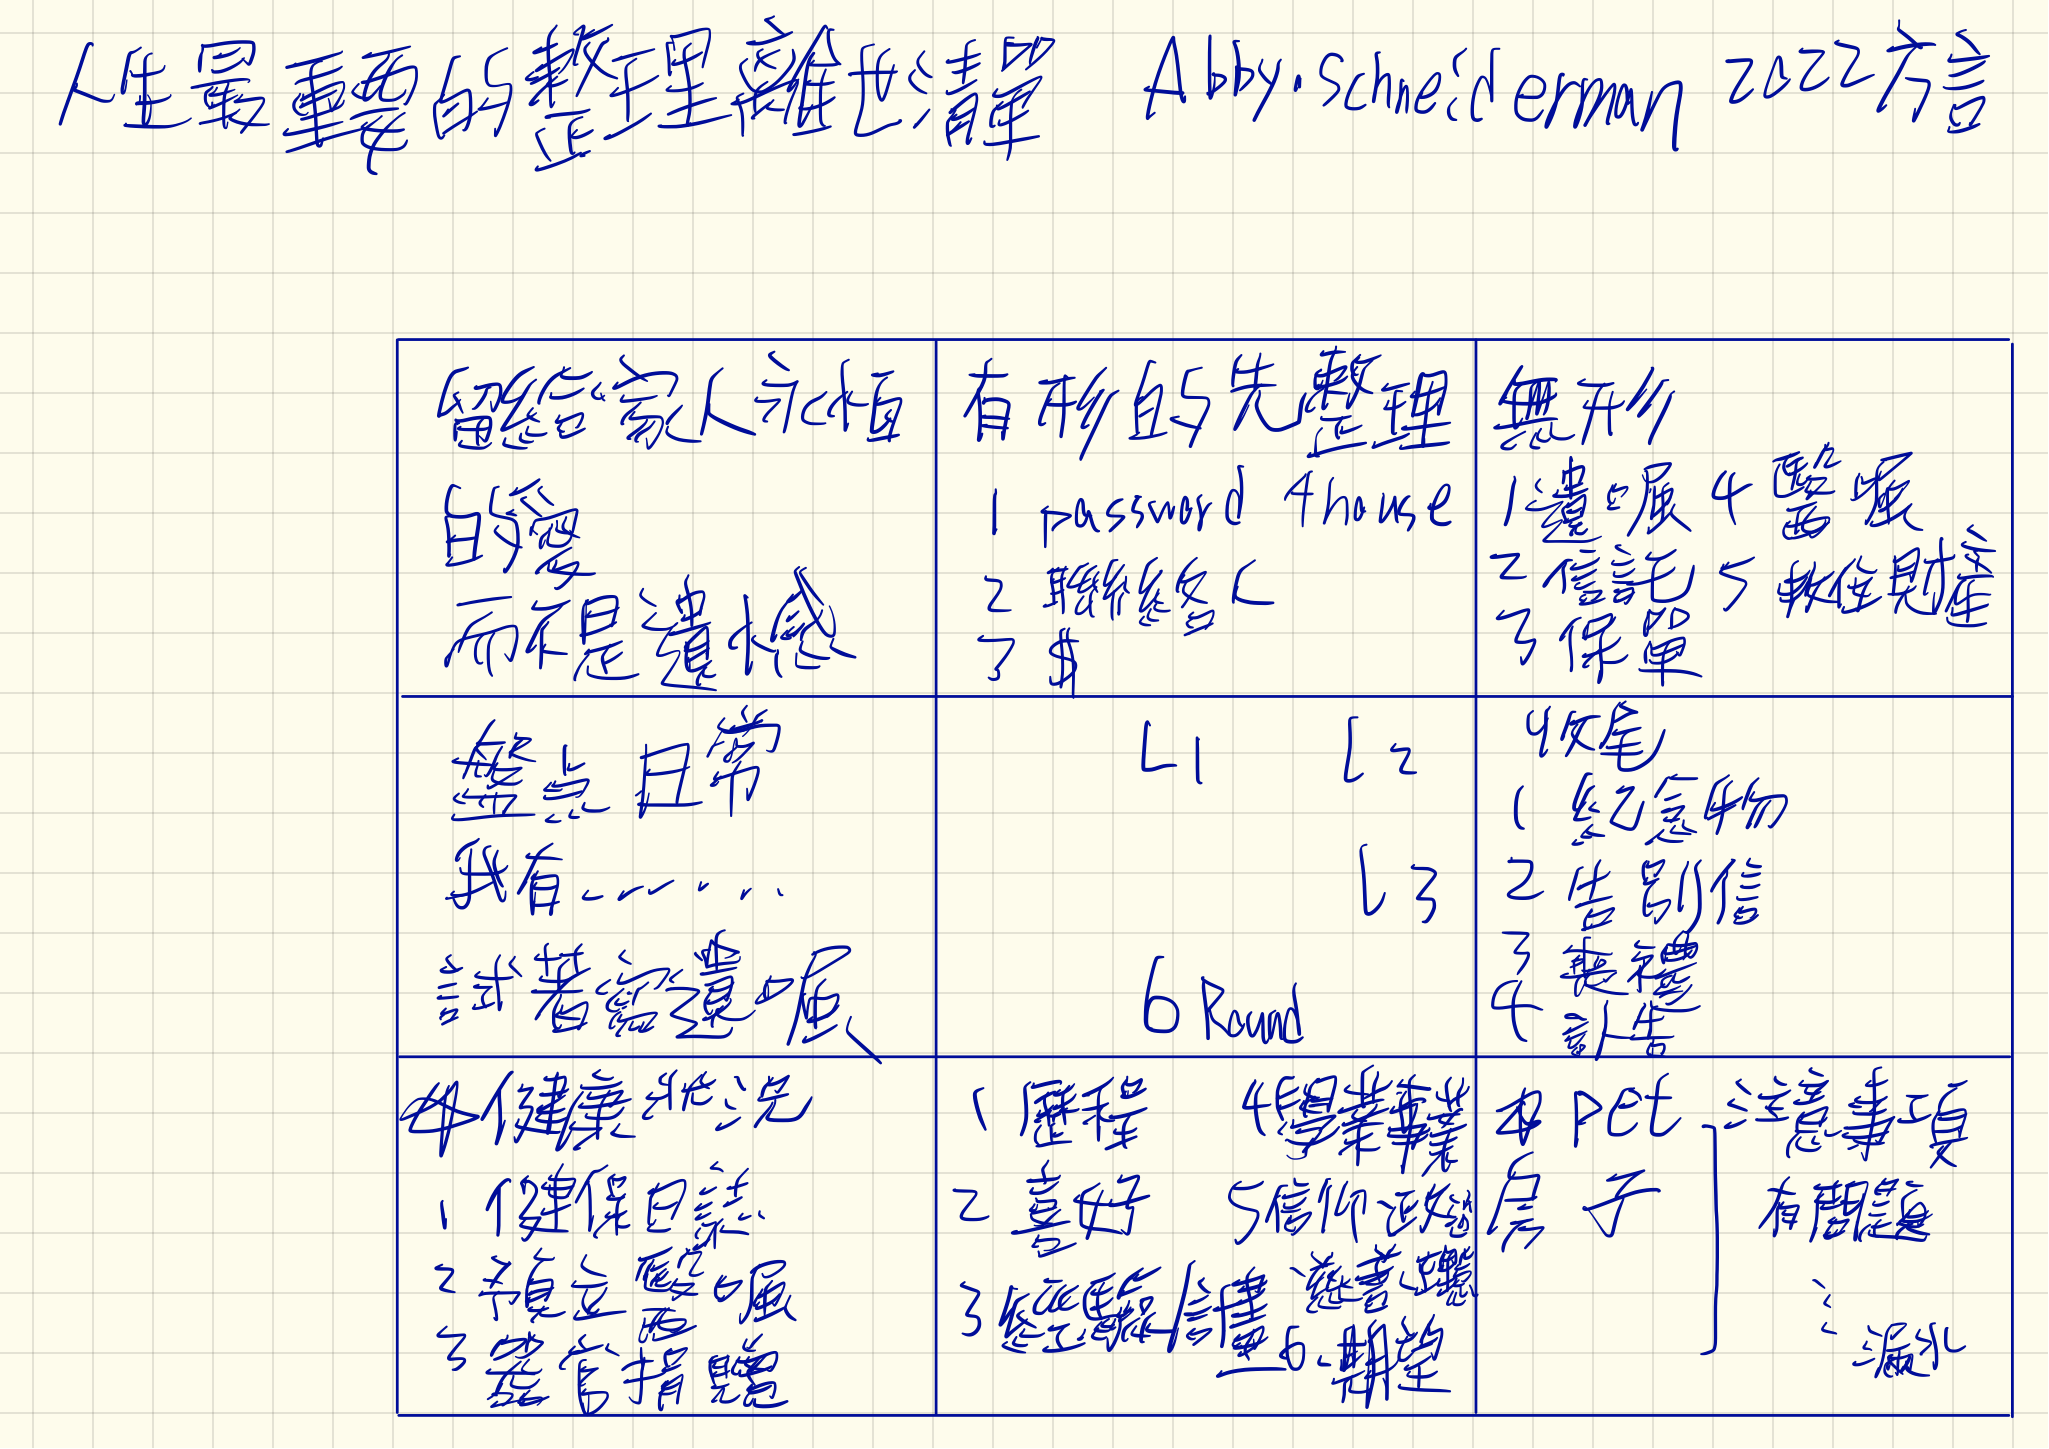 人生最重要的整理離世清單 Abby.Schneiderman 2022方言
留給家人永恒
的愛
而不是遺憾
有形的先整理
1 password 4 house
2 聯絡客C
3 $
無形
1 遺囑 4 醫囑
2 信託 5 軟性財產
3 保單
盤点日常
我有......
試著寫遺囑
L1 L2
L3
6 Round
4收尾
1 紀念物
2 告別信
3 喪禮
4 訃告
4 健康狀況
1 健保日誌
2 預立醫囑
3 器官捐贈
1 歷程 4學業事業
2 喜好 5信仰政治
慈善
3經驗 6.期望
pet 注意事項
房子 有問題
漏水